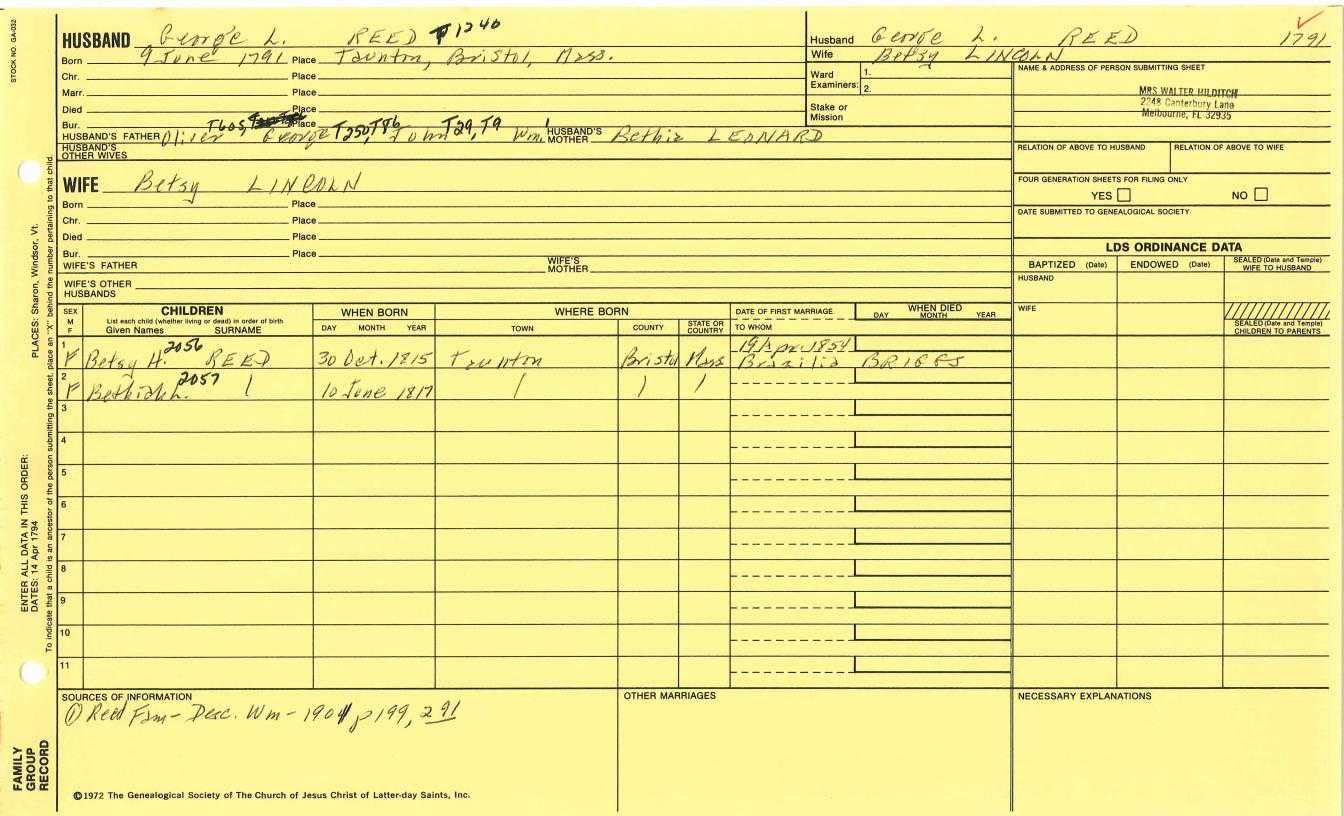 STOCK NO. GA-032
HUSBAND George L. REED T1240
Born 9 June 1791 Place Taunton, Bristol, Mass.
Chr. Place
Marr. Place
Died Place
Bur. Place
T605, T250, T86 T29, T9
HUSBAND'S FATHER Oliver George John Wm.1 HUSBAND'S MOTHER Bethia LEONARD
HUSBAND'S OTHER WIVES
WIFE Betsy LINCOLN
Born Place
Chr. Place
Died Place
Bur. Place
WIFE'S FATHER WIFE'S MOTHER
WIFE'S OTHER HUSBANDS
Husband George L. REED 1791
Wife Betsy LINCOLN
Ward Examiners: 1.
2.
Stake or Mission
NAME & ADDRESS OF PERSON SUBMITTING SHEET
MRS WALTER HILDITCH
2248 Canterbury Lane
Melbourne, FL 32935
RELATION OF ABOVE TO HUSBAND RELATION OF ABOVE TO WIFE
FOUR GENERATION SHEETS FOR FILING ONLY
YES NO
DATE SUBMITTED TO GENEALOGICAL SOCIETY
LDS ORDINANCE DATA
BAPTIZED (Date) ENDOWED (Date) SEALED (Date and Temple) WIFE TO HUSBAND
HUSBAND
WIFE
SEALED (Date and Temple) CHILDREN TO PARENTS
SEX M F CHILDREN WHEN BORN WHERE BORN DATE OF FIRST MARRIAGE WHEN DIED
List each child (whether living or dead) in order of birth
Given Names SURNAME DAY MONTH YEAR TOWN COUNTY STATE OR COUNTRY TO WHOM DAY MONTH YEAR
1 F Betsy H. 2056 REED 30 Oct. 1815 Taunton Bristol Mass 19 Apr. 1854
Brazilia BRIGGS
2 F Bethiah L. 2057 10 June 1817
3
4
5
6
7
8
9
10
11
SOURCES OF INFORMATION
① Reed Fam- Desc. Wm- 1901 p 199, 291
OTHER MARRIAGES
NECESSARY EXPLANATIONS
©1972 The Genealogical Society of The Church of Jesus Christ of Latter-day Saints, Inc.
FAMILY GROUP RECORD
ENTER ALL DATA IN THIS ORDER:
DATES: 14 Apr 1794
PLACES: Sharon, Windsor, Vt.
To indicate that a child is an ancestor of the person submitting the sheet, place an "X" behind the number pertaining to that child.